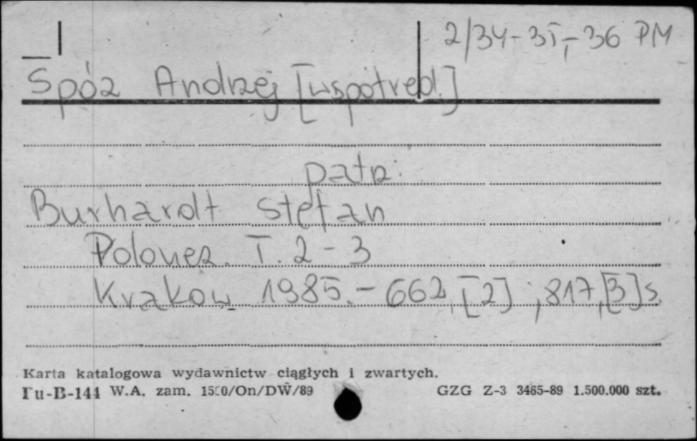 2/34-35,-36 PM
Spóz Andrzej [współred.]
patrz:
Burhardt Stefan
Polonez. T. 2-3
Kraków 1985.- 662, [2] ; 817, [3] s.
Karta katalogowa wydawnictw ciągłych i zwartych.
Pu-B-144 W.A. zam. /On/DW/89 GZG Z-3 3465-89 1.500.000 szt.